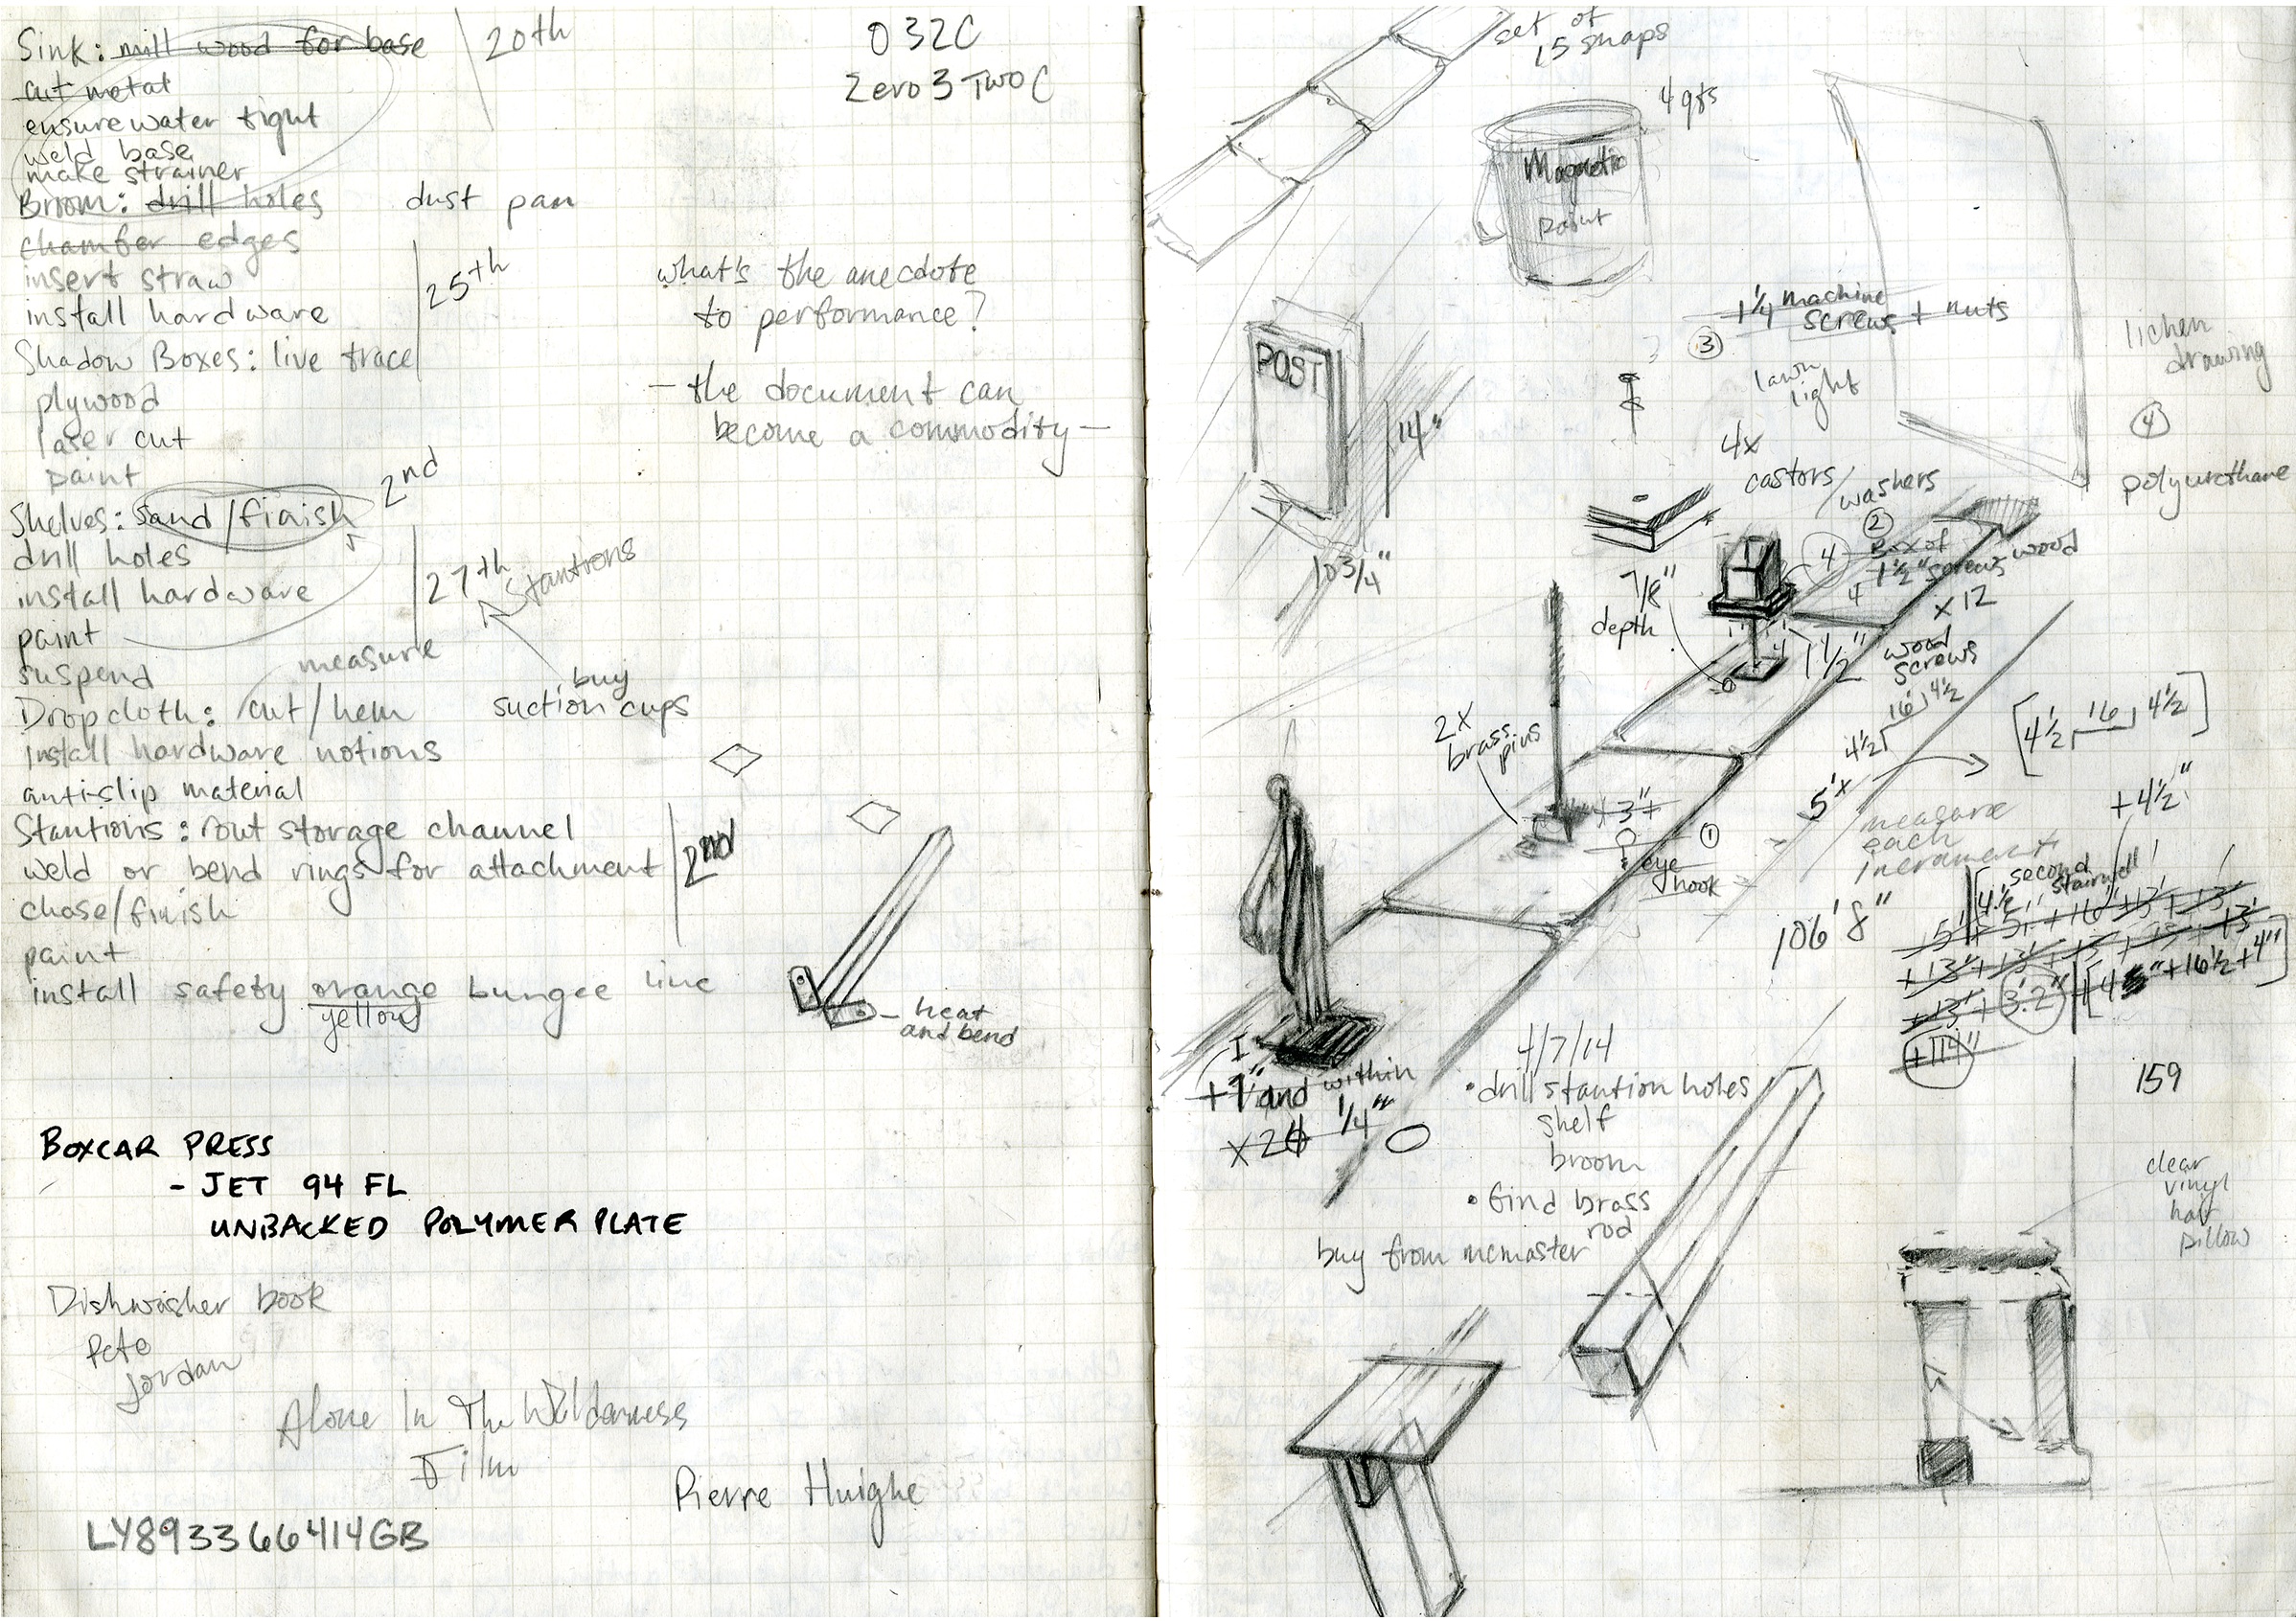 Sink: mill wood for base
20th
cut metal
ensure water tight
weld base
make strainer
Broom: drill holes
dust pan
chamfer edges
insert straw
25th
install hardware
Shadow Boxes: live trace
plywood
laser cut
paint
2nd
Shelves: sand/finish
drill holes
27th
stantions
install hardware
paint
suspend
measure
buy
suction cups
Dropcloth: cut/hem
install hardware notions
anti-slip material
Stantions: rout storage channel
2nd
weld or bend rings for attachment
chase/finish
paint
install safety orange bungee line
yellow
heat
and bend
032C
Zero 3 Two C
what's the anecdote
to performance?
- the document can
become a commodity -
BOXCAR PRESS
- JET 94 FL
UNBACKED POLYMER PLATE
Dishwasher book
Pete
Jordan
Alone In The Wilderness
Film
Pierre Huighe
LY893366414GB
set of
15 snaps
4 qts
Magnetic
paint
POST
14"
10 3/4"
1 1/4 machine
screws + nuts
3
lawn
light
lichen
drawing
4
polyurethane
4x
castors/
washers
2
4
Box of
1 1/2" screws wood
4
x 12
7/8"
depth
1 1/2"
wood
screws
4 1/2 16 4 1/2
[4 1/2 16 4 1/2]
2x
brass
pins
x 3"
1
eye
hook
5'x
measure
each
increment
+4 1/2"
second
stairwell
106' 8"
3'2"
+114"
159
and within
1/4"
4/7/14
• drill stantion holes
shelf
broom
• Gind brass
rod
buy from mcmaster
clear
vinyl
half
pillow